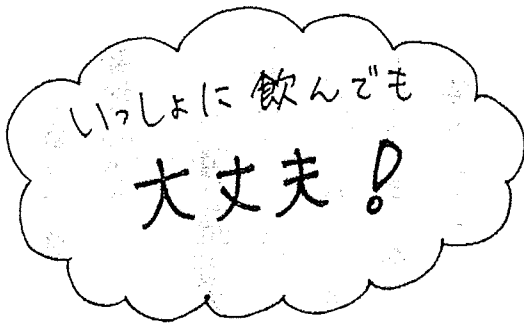 いっしょに飲んでも
大丈夫!